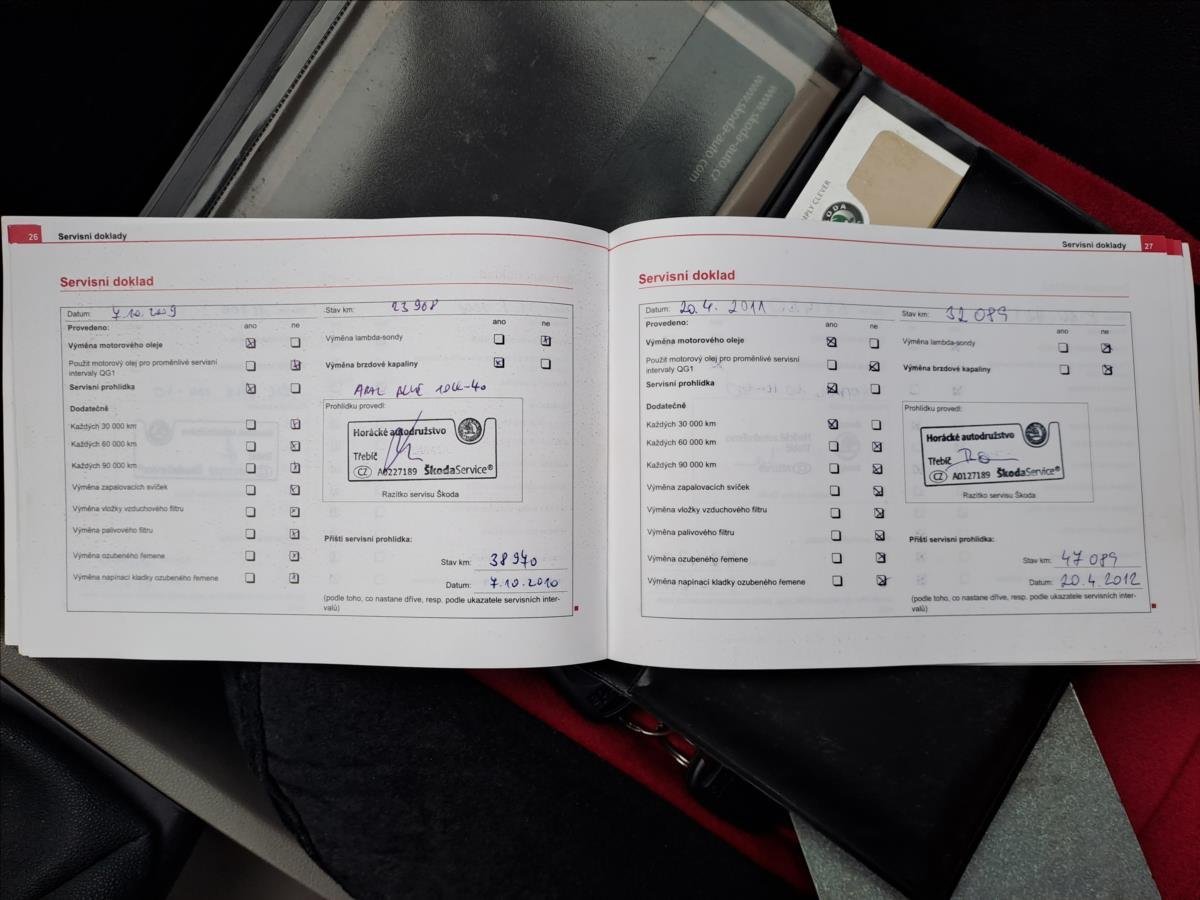 www.skoda-auto.cz
www.skoda-auto.com
SIMPLY CLEVER
26 Servisní doklady
Servisní doklad
Datum: 7.10.2009 Stav km: 23 908
Provedeno: ano ne ano ne
Výměna motorového oleje
Výměna lambda-sondy
Použit motorový olej pro proměnlivé servisní
intervaly QG1
Výměna brzdové kapaliny
Servisní prohlídka
10W-40
Dodatečně
Prohlídku provedl:
Každých 30 000 km
Každých 60 000 km
Každých 90 000 km
Horácké autodružstvo
Třebíč
CZ A0227189 ŠkodaService®
Razítko servisu Škoda
Výměna zapalovacích svíček
Výměna vložky vzduchového filtru
Výměna palivového filtru
Výměna ozubeného řemene
Výměna napínací kladky ozubeného řemene
Příští servisní prohlídka:
Stav km: 38 970
Datum: 7.10.2010
(podle toho, co nastane dříve, resp. podle ukazatele servisních inter-
valů)
Servisní doklady 27
Servisní doklad
Datum: 20.4. 2011 Stav km: 32 089
Provedeno: ano ne ano ne
Výměna motorového oleje
Výměna lambda-sondy
Použit motorový olej pro proměnlivé servisní
intervaly QG1
Výměna brzdové kapaliny
Servisní prohlídka
Dodatečně
Prohlídku provedl:
Každých 30 000 km
Každých 60 000 km
Každých 90 000 km
Horácké autodružstvo
Třebíč
CZ A0127189 ŠkodaService®
Razítko servisu Škoda
Výměna zapalovacích svíček
Výměna vložky vzduchového filtru
Výměna palivového filtru
Výměna ozubeného řemene
Výměna napínací kladky ozubeného řemene
Příští servisní prohlídka:
Stav km: 47 089
Datum: 20.4. 2012
(podle toho, co nastane dříve, resp. podle ukazatele servisních inter-
valů)